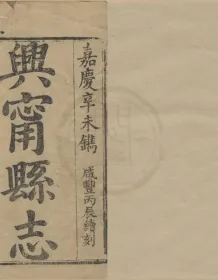 嘉慶辛未鐫
咸豐丙辰續刻
興甯縣志